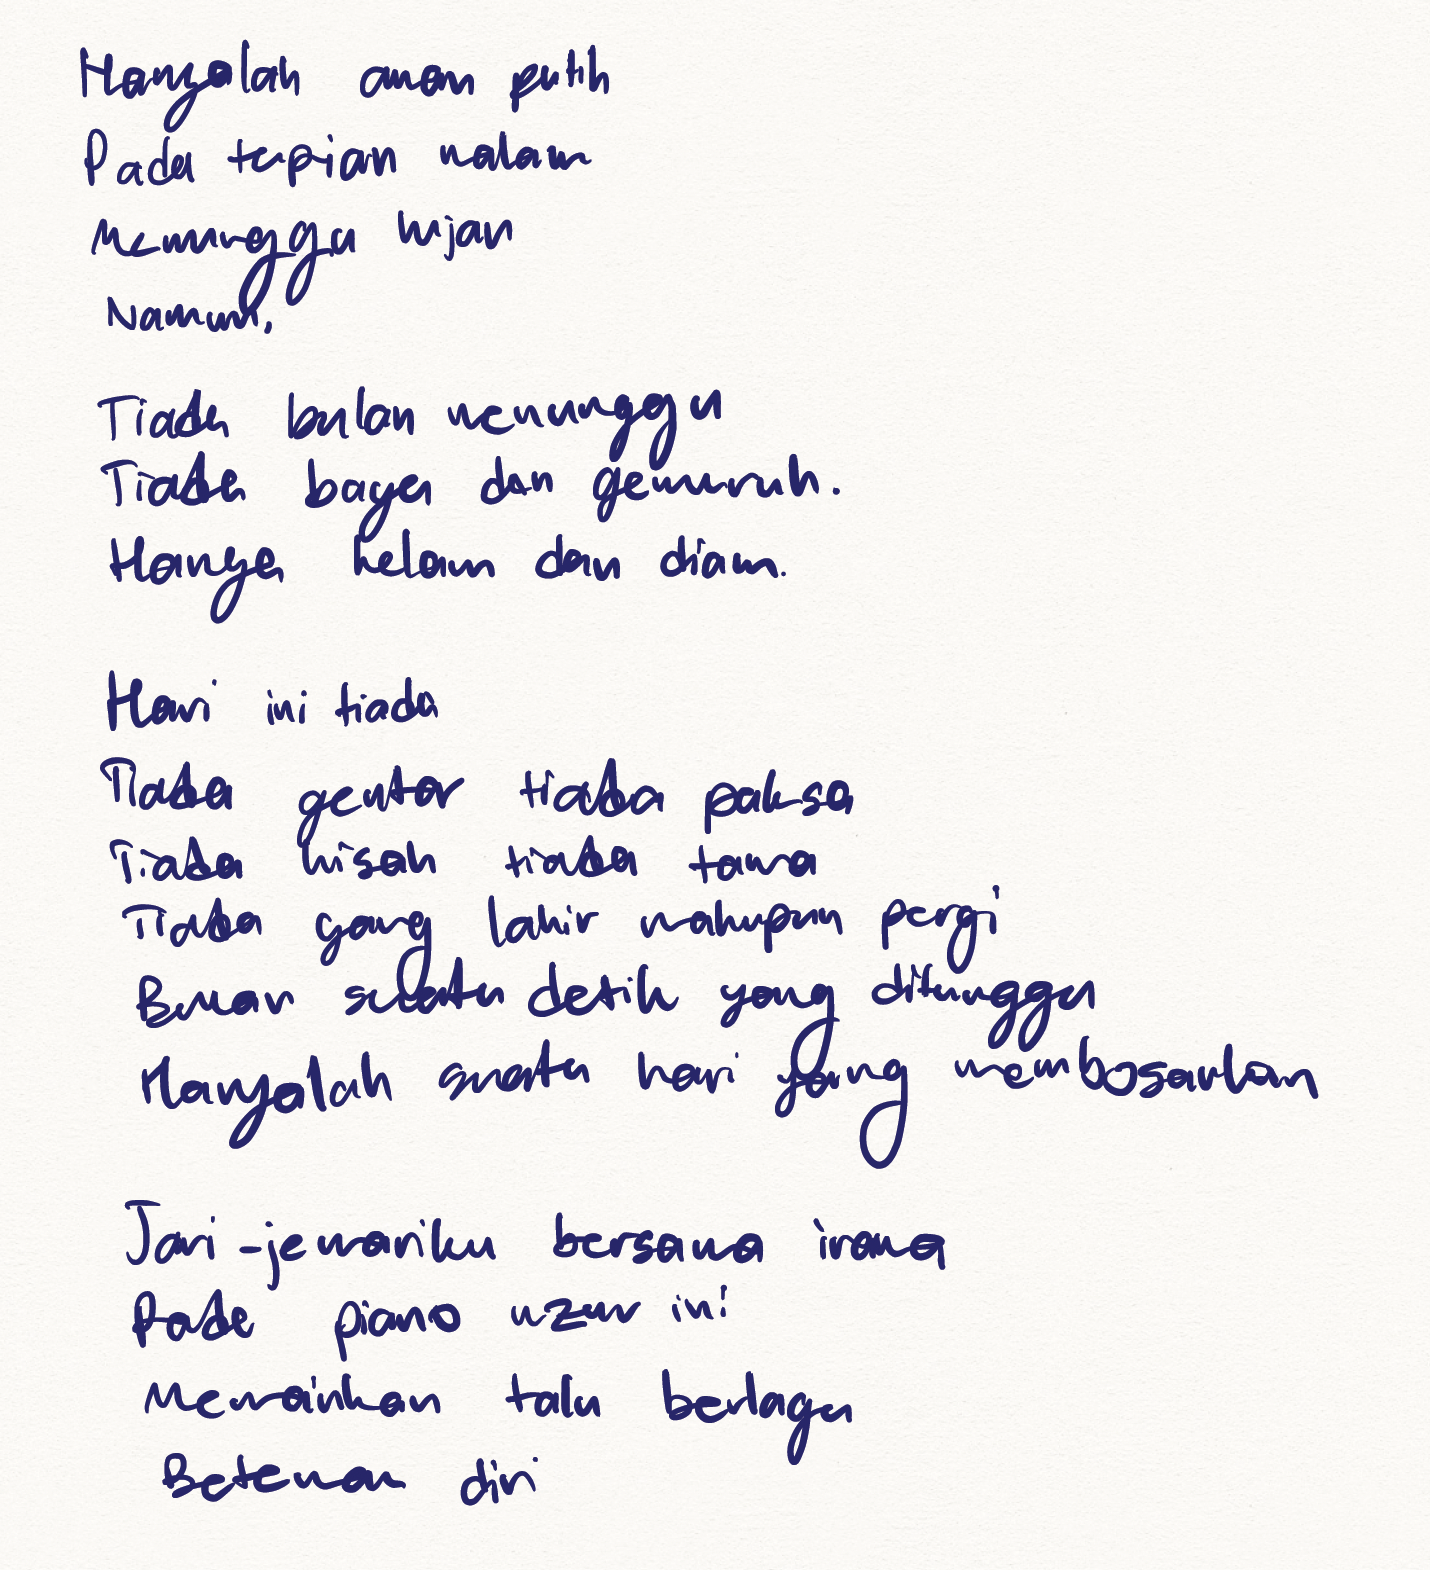 Hanyalah awan putih
Pada tepian malam
Menunggu hujan
Namun,
Tiada bulan menunggu
Tiada bayu dan gemuruh.
Hanya kelam dan diam.
Hari ini tiada
Tiada gentar tiada paksa
Tiada kisah tiada tawa
Tiada yang lahir mahupun pergi
Bukan suatu detik yang ditunggu
Hanyalah suatu hari yang membosankan
Jari-jemariku bersama irama
Pada piano uzur ini
Memainkan talu berlagu
Beteman diri